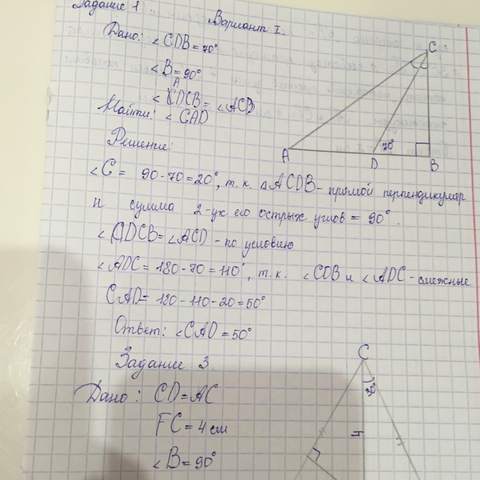 Задание 1
Вариант I.
Дано: ∠CDB = 70°
∠B = 90°
∠DCB = ∠ACD
Найти: ∠CAD
Решение:
∠C = 90-70=20°, т.к. △CDB - прямой перпендикуляр
и сумма 2-ух его острых углов = 90°.
∠DCB = ∠ACD - по условию
∠ADC = 180-70 = 110°, т.к. ∠CDB и ∠ADC - смежные
CAD = 180-110-20=50°
Ответ: ∠CAD = 50°
Задание 3.
Дано: CD = AC
FC = 4 см
∠B = 90°
C
A
D
70°
B
C
4